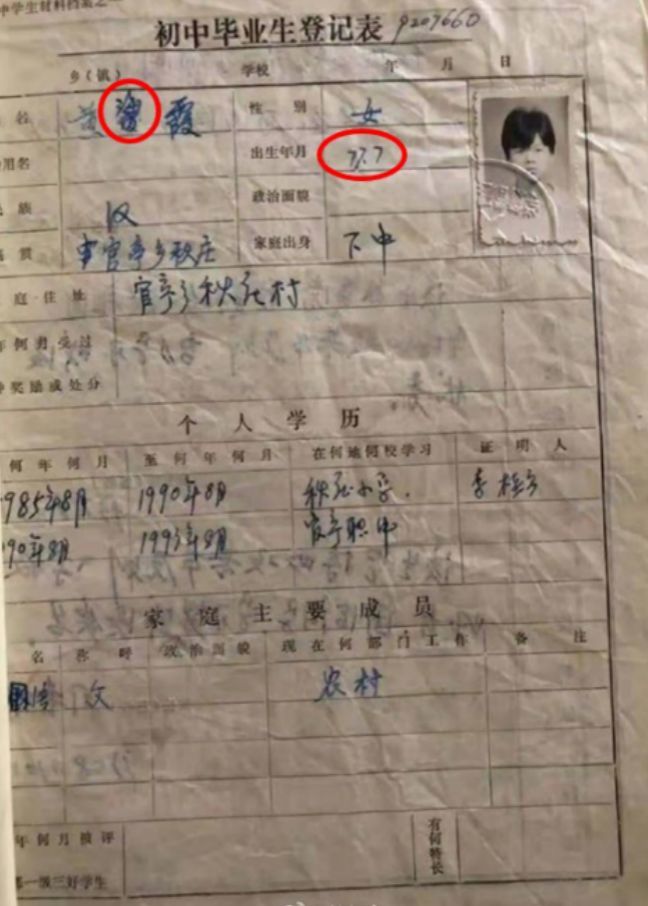 中学生材料档案之一
初中毕业生登记表 9207660
乡(镇) 学校 年 月 日
名 黄 霞 性别 女
用名 出生年月 77.7
民族 汉 政治面貌
贯 官亭乡秋庄 家庭出身 下中
庭住址 官亭乡秋庄村
年何月受过
种奖励或处分
个人学历
何年何月 至何年何月 在何地何校学习 证明人
1985年8月 1990年8月 秋庄小学.
90年8月 1993年8月 官亭职中
家庭主要成员
名 称呼 政治面貌 现在何部门工作 备注
父 农村
年何月被评 有何特长
第一级三好学生